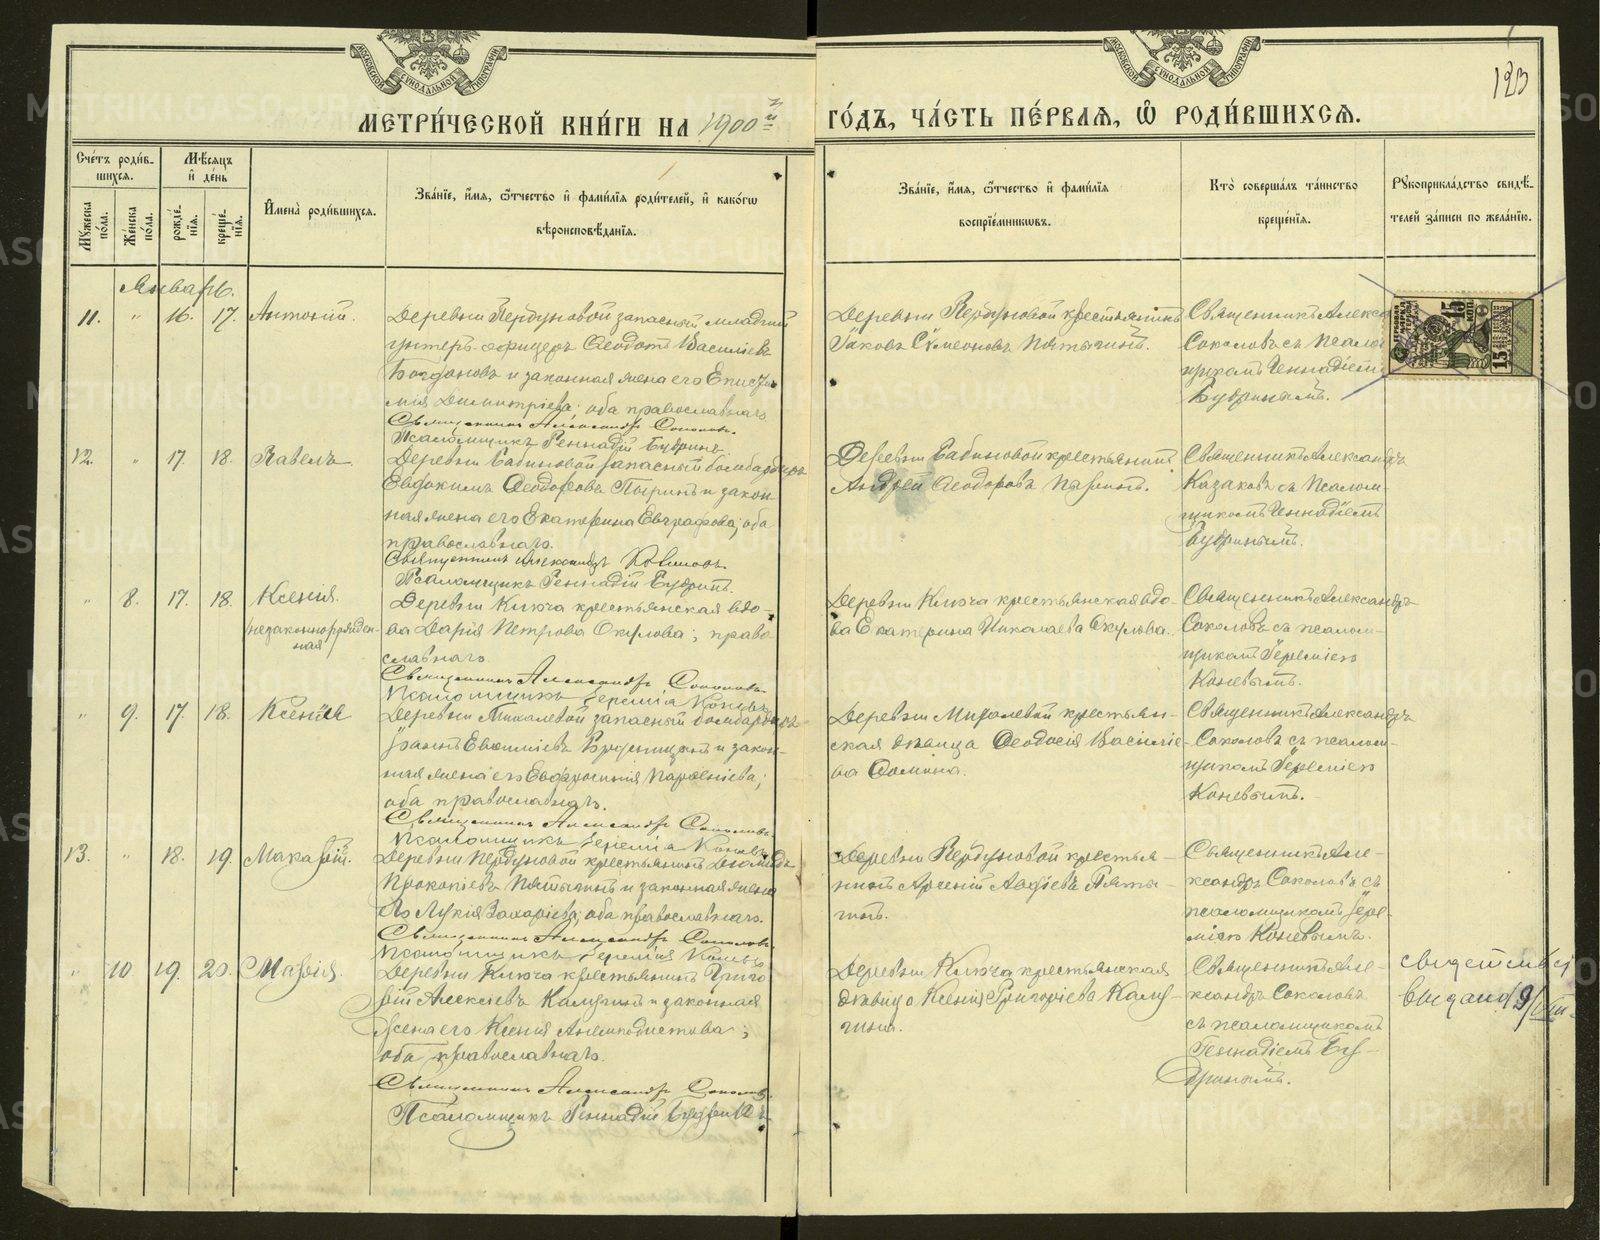 МОСКОВСКОЙ СУНОДАЛЬНОЙ ТИПОГРАФИИ
МОСКОВСКОЙ СУНОДАЛЬНОЙ ТИПОГРАФИИ
123
МЕТРИ́ЧЕСКОЙ КНИ́ГИ НА 1900й
ГО́ДЪ, ЧА́СТЬ ПЕ́РВАЯ, Ѽ РОДИ́ВШИХСЯ.
Сче́тъ роди́в-
шихся.
Му́жеска по́ла.
Же́нска по́ла.
Мѣ́сяцъ
и҆ де́нь
рожде́нїѧ.
креще́нїѧ.
И҆мена̀ роди́вшихся.
Зва́нїе, и҆́мя, ѻ҆́тчество и҆ фами́лїя роди́телей, и҆ како́гѡ
вѣроисповѣ́данїя.
Зва́нїе, и҆́мя, ѻ҆́тчество и҆ фами́лїя
воспрїе́мникѡвъ.
Кто̀ соверша́лъ та́инство
креще́нїя.
Рꙋкоприкла́дство свидѣ́-
телей за́писи по жела́нїю.
Январь.
11. " 16. 17. Антоній.
Деревни Пердуновой запасный младшій
унтеръ-офицеръ Ѳеодотъ Васильевъ
Богдановъ и законная жена его
Димитріева; оба православнаго.
Священникъ Александръ Соколовъ.
Псаломщикъ Геннадій Будринъ.
Деревни Пердуновой крестьянинъ
Іаковъ Сѵмеоновъ Пятыгинъ.
Священникъ
Соколовъ съ
Геннадіемъ
Будринымъ.
15
12. " 17. 18. Павелъ.
Деревни Бабиновой запасный бомбардиръ
Евдокимъ Ѳеодоровъ и закон-
ная жена его Екатерина Евграфова; оба
православнаго.
Священникъ Александръ
Псаломщикъ Геннадій Будринъ.
Деревни Бабиновой крестьянинъ
Андрей Ѳеодоровъ
Священникъ Александръ
Казаковъ съ псалом-
щикомъ Геннадіемъ
Будринымъ.
" 8. 17. 18. Ксенія.
(незаконнорожден-
ная
Деревни Ключа крестьянская вдо-
ва Дарія Петрова Окулова; право-
славнаго.
Священникъ Александръ Соколовъ.
Псаломщикъ Іеремія Коневъ
Деревни Ключа крестьянская вдо-
ва Екатерина Николаева Окулова.
Священникъ Александръ
Соколовъ съ псалом-
щикомъ Іереміею
Коневымъ.
" 9. 17. 18. Ксенія
Деревни запасный бомбардиръ
Евѳиміевъ и закон-
ная жена его Евфросинія Парѳеніева;
оба православнаго.
Священникъ Александръ Соколовъ.
Псаломщикъ Іеремія Коневъ
Деревни крестьян-
ская дѣвица Ѳеодосія Василіе-
ва Ѳомина.
Священникъ Александръ
Соколовъ съ псалом-
щикомъ Іереміею
Коневымъ.
13. " 18. 19. Макарій.
Деревни Пердуновой крестьянинъ
Прокопіевъ Пятыгинъ и законная жена
его Лукія Захаріева; оба православнаго.
Священникъ Александръ Соколовъ
Псаломщикъ Іеремія Коневъ
Деревни Пердуновой крестья-
нинъ Арсеній Авдіевъ Пяты-
гинъ.
Священникъ Але-
ксандръ Соколовъ съ
псаломщикомъ Іере-
міею Коневымъ.
" 10 19. 20. Марія.
Деревни Ключа крестьянинъ Григо-
рій Алексіевъ Калугинъ и законная
жена его Ксенія
оба православнаго.
Священникъ Александръ Соколовъ.
Псаломщикъ Геннадій Будринъ
Деревни Ключа крестьянская
дѣвица Ксенія Григоріева Калу-
гина.
Священникъ Але-
ксандръ Соколовъ
съ псаломщикомъ
Геннадіемъ Бу-
дринымъ.
METRIKI.GASO-URAL.RU